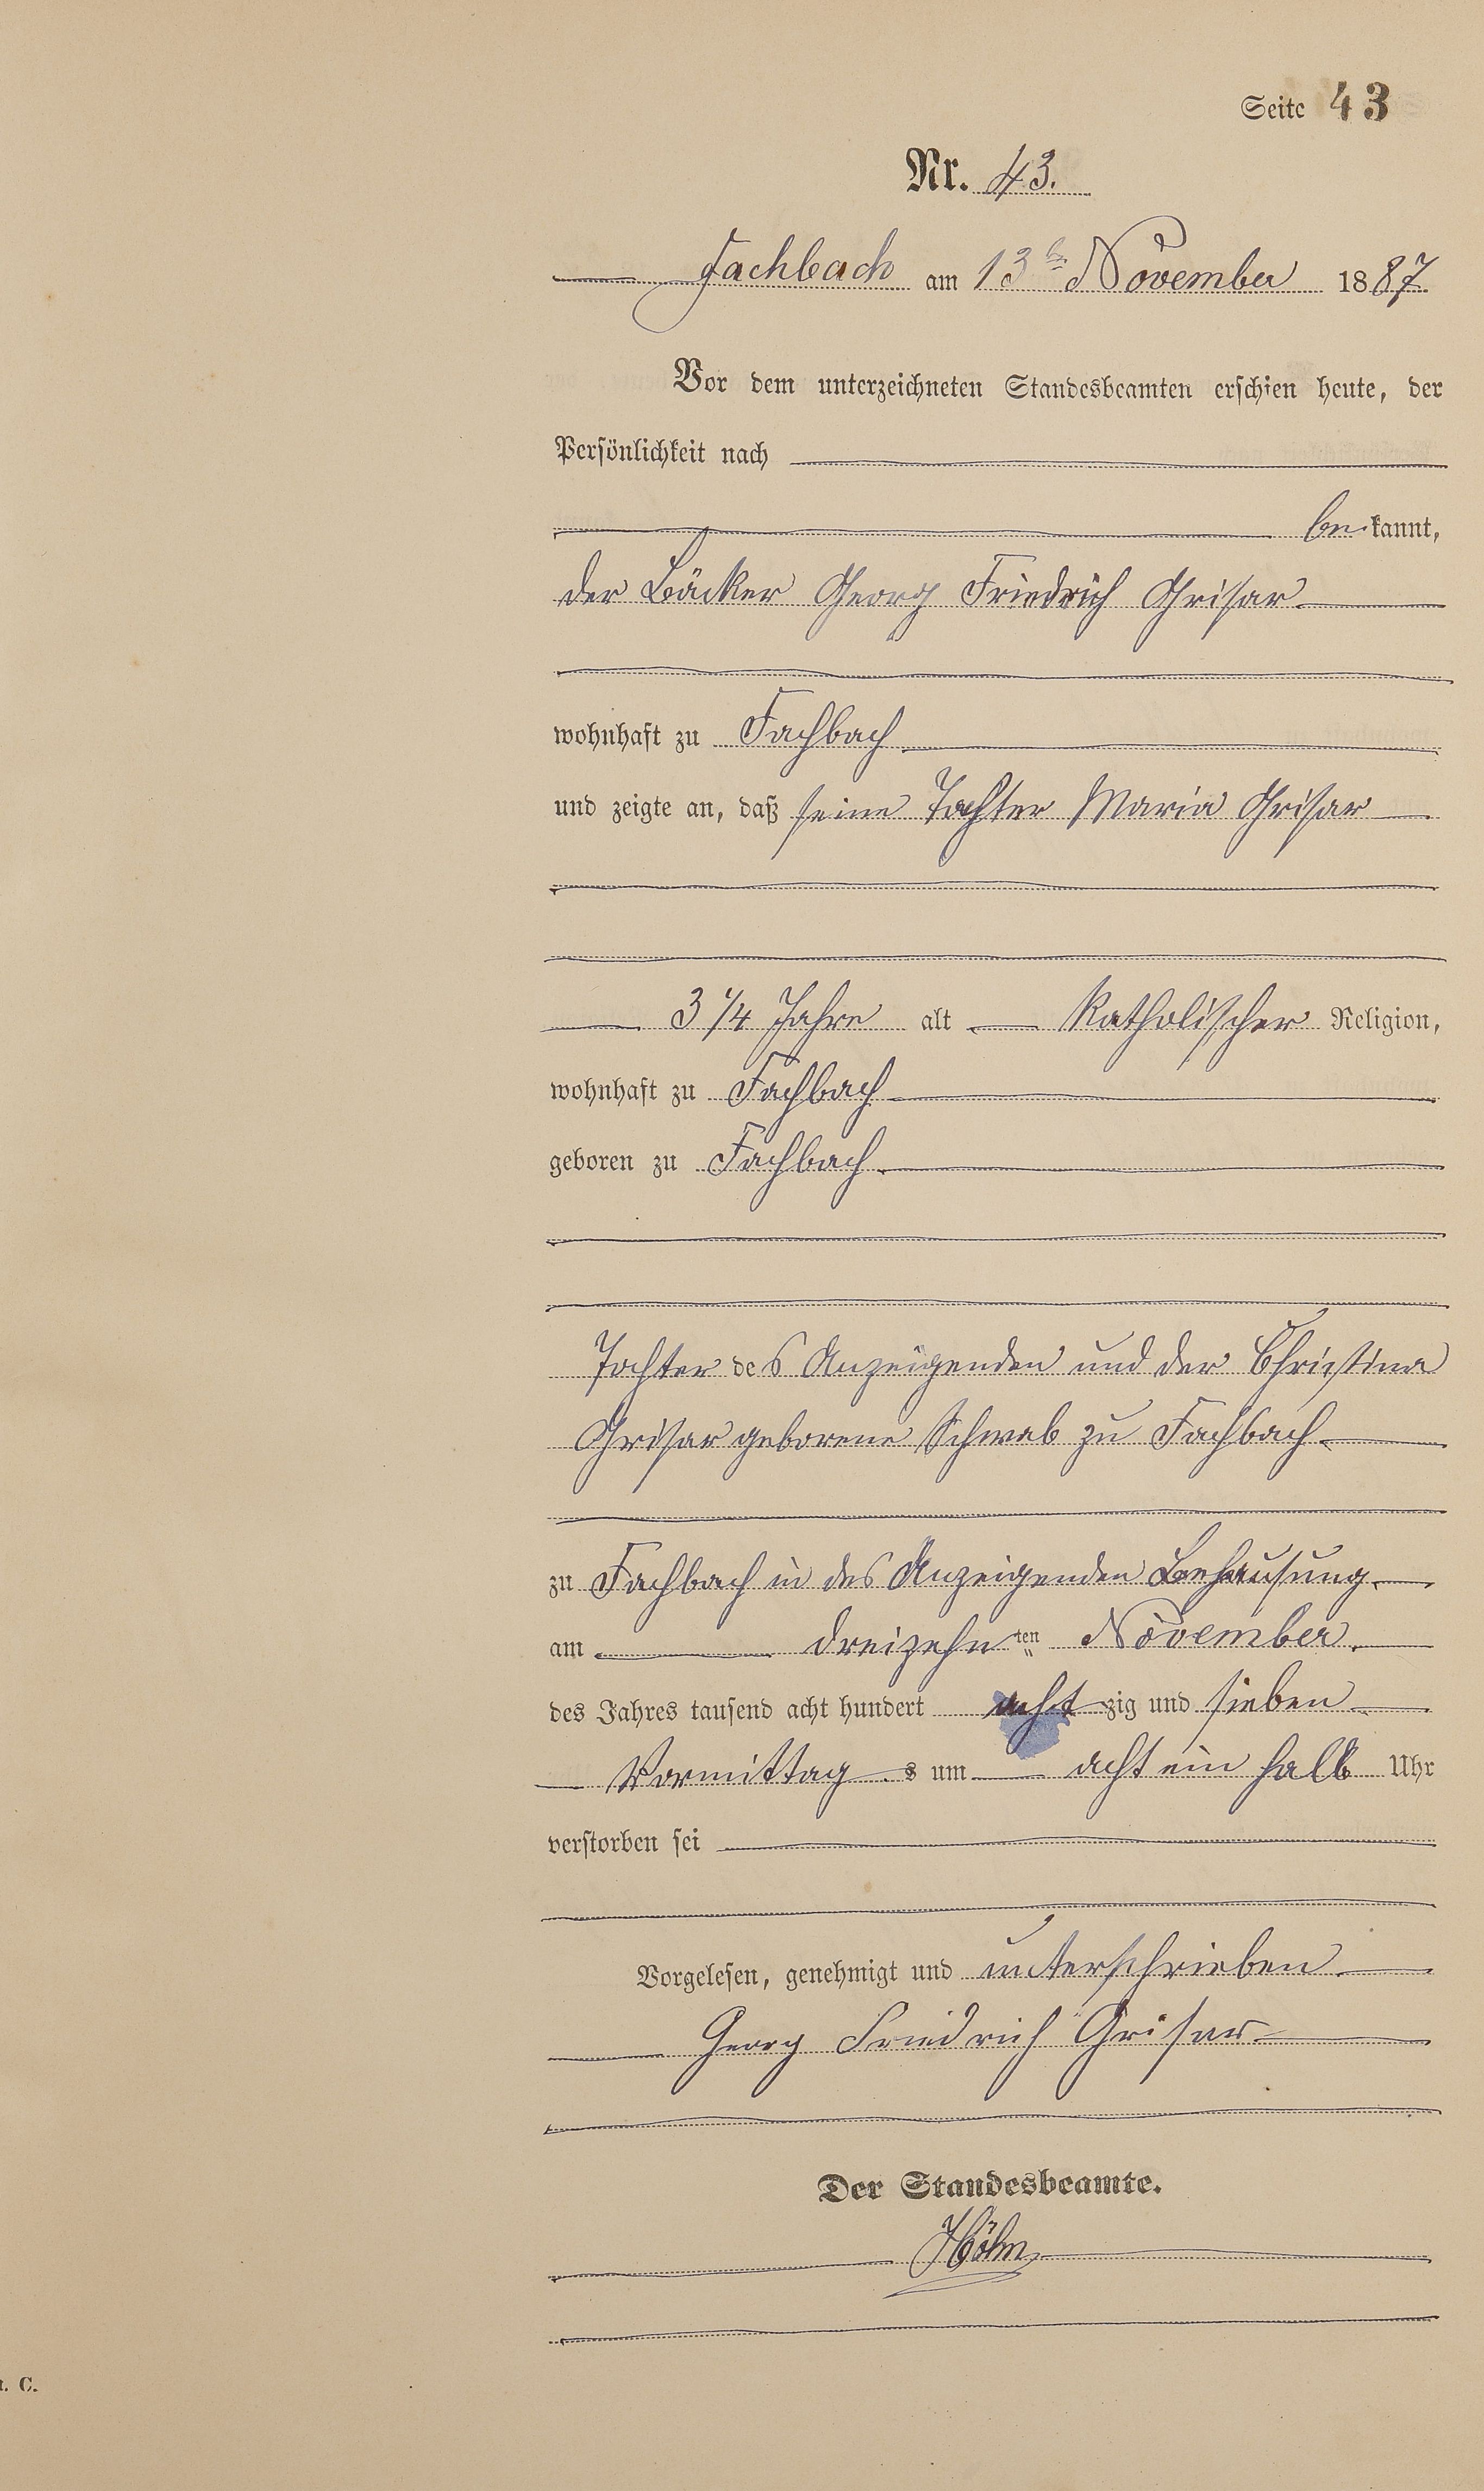 Seite 43
Nr. 43.
Fachbach am 13ten November 1887.
Vor dem unterzeichneten Standesbeamten erschien heute, der
Persönlichkeit nach
bekannt,
der Bäcker Georg Friedrich Grisar
wohnhaft zu Fachbach
und zeigte an, daß seine Tochter Maria Grisar
3 1/4 Jahre alt Katholischer Religion,
wohnhaft zu Fachbach
geboren zu Fachbach
Tochter des Anzeigenden und der Christina
Grisar geborene Schwab zu Fachbach
zu Fachbach in des Anzeigenden Behausung
am dreizehnten November
des Jahres tausend acht hundert achtzig und sieben
Vormittags um acht ein halb Uhr
verstorben sei
Vorgelesen, genehmigt und unterschrieben
Georg Friedrich Grisar
Der Standesbeamte.
C.